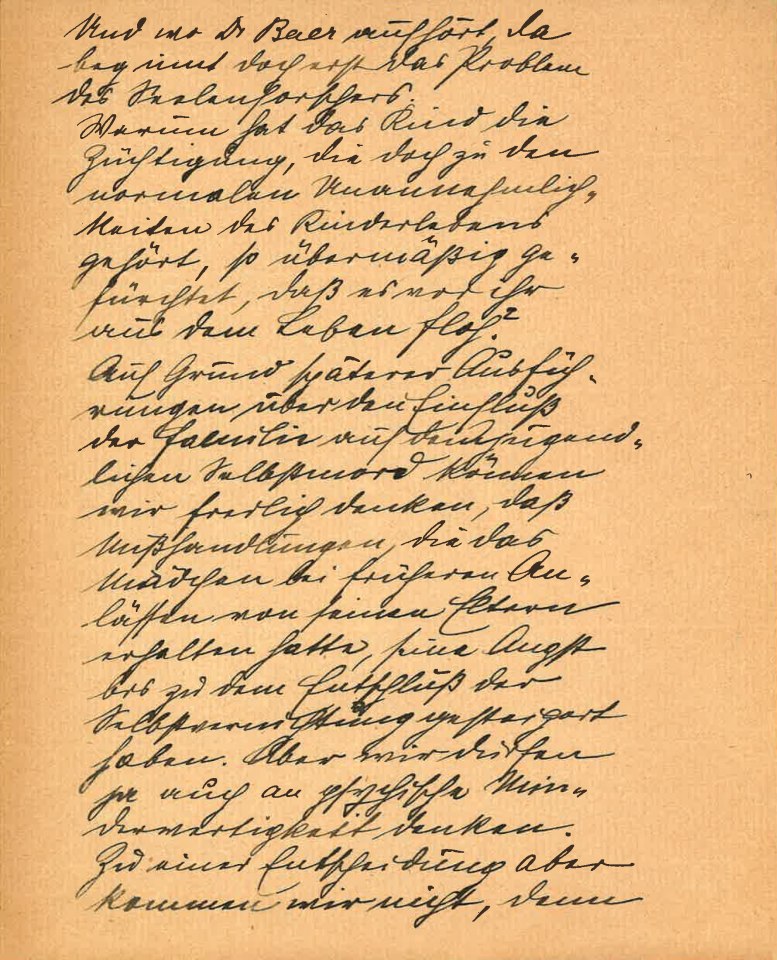 Und wo Dr Baer aufhört, da
beginnt doch erst das Problem
des Seelenforschers.
Warum hat das Kind die
Züchtigung, die doch zu den
normalen Unannehmlich-
keiten des Kinderlebens
gehört, so übermäßig ge-
fürchtet, daß es vor ihr
aus dem Leben floh?
Auf Grund späterer Ausfüh-
rungen über den Einfluß
der Familie auf den jugend-
lichen Selbstmord können
wir freilich denken, daß
Mißhandlungen, die das
Mädchen bei früheren An-
lässen von seinen Eltern
erhalten hatte, seine Angst
bis zu dem Entschluß der
Selbstvernichtung gesteigert
haben. Aber wir dürfen
ja auch an psychische Min-
derwertigkeit denken.
Zu einer Entscheidung aber
kommen wir nicht, denn